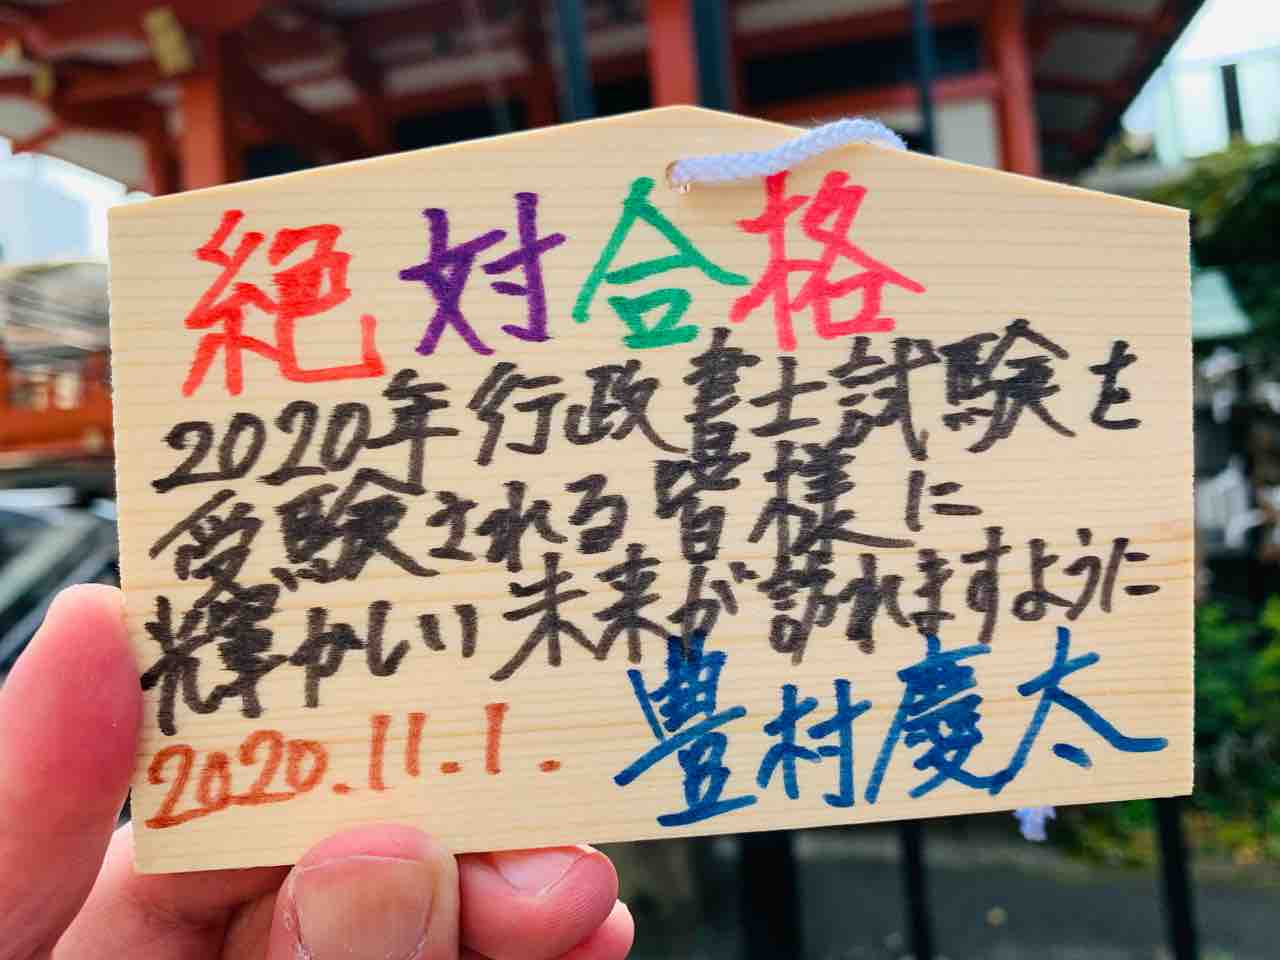 絶対合格
2020年行政書士試験を
受験される皆様に
輝かしい未来が訪れますように
2020.11.1.
豊村慶太